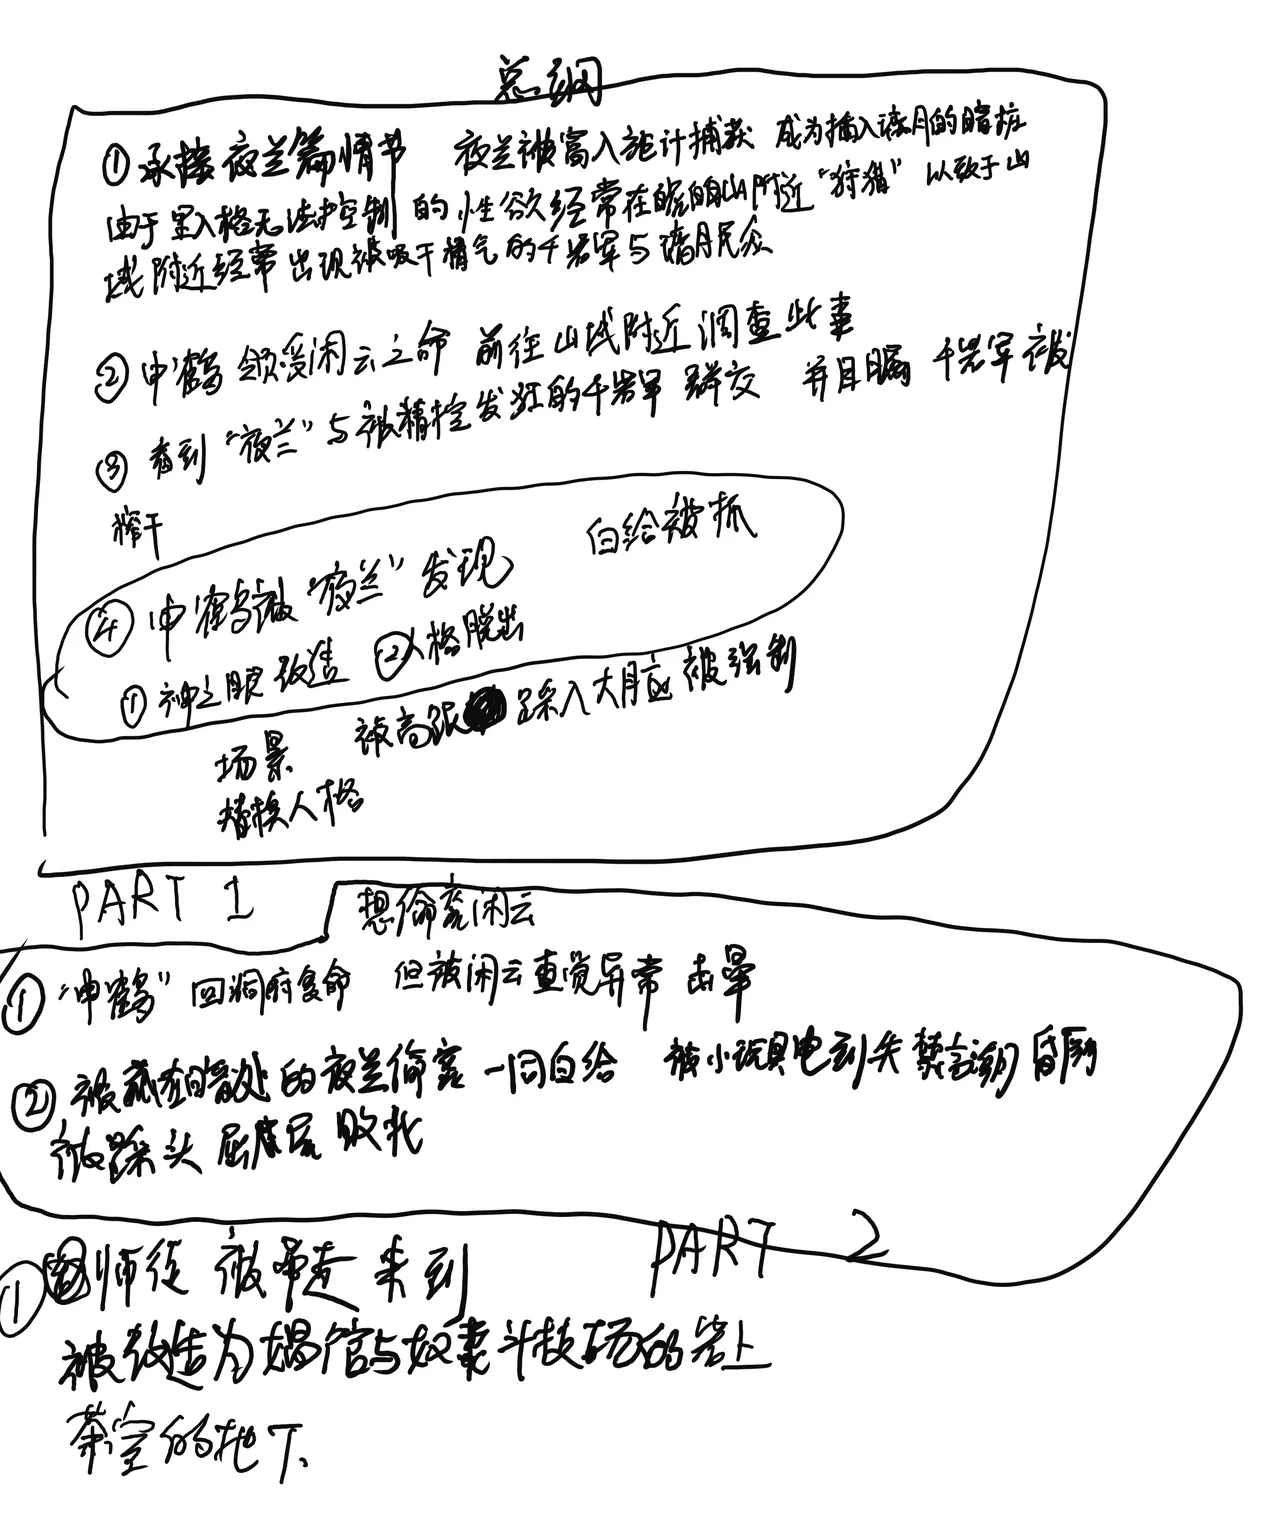 总纲
① 承接夜兰篇情节 夜兰被富人施计捕获 成为插入璃月的暗桩
由于 人格无法控制的性欲经常在 附近“狩猎” 以致于山
域附近经常出现被吸干精气的千岩军与璃月民众
② 申鹤领受闲云之命 前往山域附近调查此事
③ 看到“夜兰”与被精控发狂的千岩军群交 并目睹 千岩军被
榨干
④ 申鹤被“夜兰”发现 白给被抓
① 神之眼改造 ②人格脱出
场景 被高跟 踩入大 被强制
替换人格
PART 1 想偷袭闲云
① “申鹤”回洞府复命 但被闲云查觉异常 击晕
② 被藏在暗处的夜兰偷袭 一同白给 被小玩具电到失禁 潮
被踩头 屈 败北
PART 2
① 师徒被带走来到
被改造为娼馆与奴妻斗技场的岩上
茶室的地下